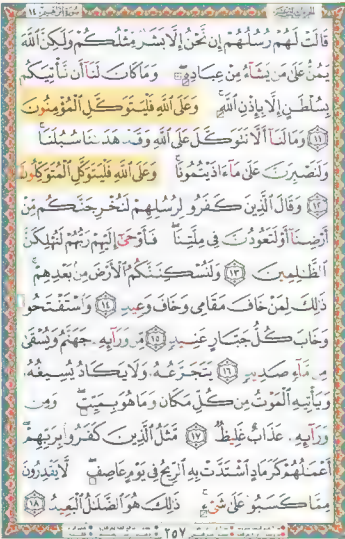 سُورَةُ إِبْرَاهِيمَ ١٤
قَالَتْ لَهُمْ رُسُلُهُمْ إِن نَّحْنُ إِلَّا بَشَرٌ مِّثْلُكُمْ وَلَٰكِنَّ ٱللَّهَ
يَمُنُّ عَلَىٰ مَن يَشَآءُ مِنْ عِبَادِهِۦ ۖ وَمَا كَانَ لَنَآ أَن نَّأْتِيَكُم
بِسُلْطَٰنٍ إِلَّا بِإِذْنِ ٱللَّهِ ۚ وَعَلَى ٱللَّهِ فَلْيَتَوَكَّلِ ٱلْمُؤْمِنُونَ
١١ وَمَا لَنَآ أَلَّا نَتَوَكَّلَ عَلَى ٱللَّهِ وَقَدْ هَدَىٰنَا سُبُلَنَا ۚ
وَلَنَصْبِرَنَّ عَلَىٰ مَآ ءَاذَيْتُمُونَا ۚ وَعَلَى ٱللَّهِ فَلْيَتَوَكَّلِ ٱلْمُتَوَكِّلُونَ
١٢ وَقَالَ ٱلَّذِينَ كَفَرُوا۟ لِرُسُلِهِمْ لَنُخْرِجَنَّكُم مِّنْ
أَرْضِنَآ أَوْ لَتَعُودُنَّ فِى مِلَّتِنَا ۖ فَأَوْحَىٰٓ إِلَيْهِمْ رَبُّهُمْ لَنُهْلِكَنَّ
ٱلظَّٰلِمِينَ ١٣ وَلَنُسْكِنَنَّكُمُ ٱلْأَرْضَ مِنۢ بَعْدِهِمْ ۚ
ذَٰلِكَ لِمَنْ خَافَ مَقَامِى وَخَافَ وَعِيدِ ١٤ وَٱسْتَفْتَحُوا۟
وَخَابَ كُلُّ جَبَّارٍ عَنِيدٍ ١٥ مِّن وَرَآئِهِۦ جَهَنَّمُ وَيُسْقَىٰ
مِن مَّآءٍ صَدِيدٍ ١٦ يَتَجَرَّعُهُۥ وَلَا يَكَادُ يُسِيغُهُۥ
وَيَأْتِيهِ ٱلْمَوْتُ مِن كُلِّ مَكَانٍ وَمَا هُوَ بِمَيِّتٍ ۖ وَمِن
وَرَآئِهِۦ عَذَابٌ غَلِيظٌ ١٧ مَّثَلُ ٱلَّذِينَ كَفَرُوا۟ بِرَبِّهِمْ ۖ
أَعْمَٰلُهُمْ كَرَمَادٍ ٱشْتَدَّتْ بِهِ ٱلرِّيحُ فِى يَوْمٍ عَاصِفٍ ۖ لَّا يَقْدِرُونَ
مِمَّا كَسَبُوا۟ عَلَىٰ شَىْءٍ ۚ ذَٰلِكَ هُوَ ٱلضَّلَٰلُ ٱلْبَعِيدُ ١٨
٢٥٧